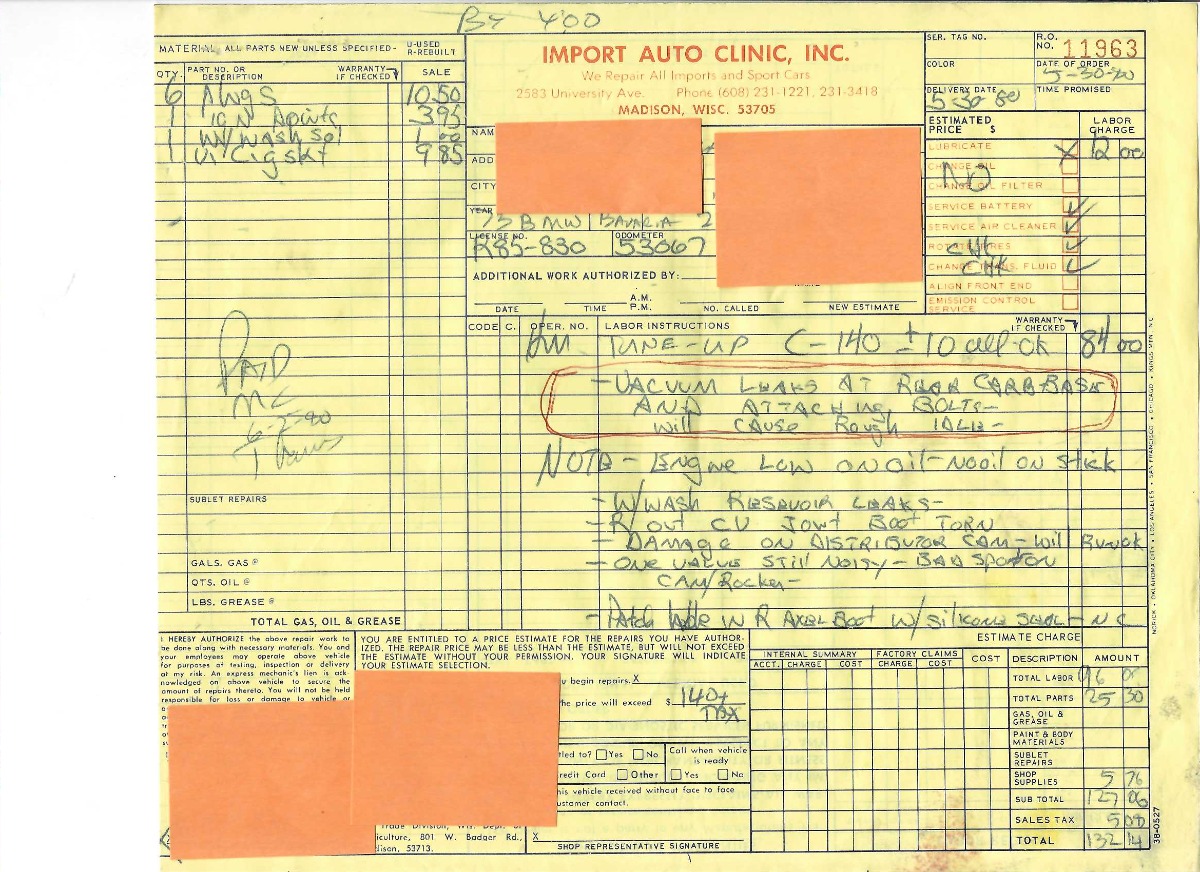 By 400
MATERIAL, ALL PARTS NEW UNLESS SPECIFIED- U-USED R-REBUILT
QTY. PART NO. OR DESCRIPTION WARRANTY IF CHECKED SALE
6 Plugs 10.50
1 IGN Points 3.95
1 W/WASH Sol 1.00
1 V. C. gskt 9 85
PAID
MC
6-2-80
Thanks
SUBLET REPAIRS
GALS. GAS @
QTS. OIL @
LBS. GREASE @
TOTAL GAS, OIL & GREASE
IMPORT AUTO CLINIC, INC.
We Repair All Imports and Sport Cars
2583 University Ave. Phone (608) 231-1221, 231-3418
MADISON, WISC. 53705
NAM
ADD
CITY
YEAR
73 BMW BAVARIA 2
LICENSE NO. ODOMETER
R85-830 53067
ADDITIONAL WORK AUTHORIZED BY:
DATE TIME A.M. P.M. NO. CALLED NEW ESTIMATE
SER. TAG NO. R.O. NO. 11963
COLOR DATE OF ORDER
5-30-80
DELIVERY DATE TIME PROMISED
5-30-80
ESTIMATED PRICE $ LABOR CHARGE
LUBRICATE X 12 00
CHANGE OIL
NO
CHANGE OIL FILTER
SERVICE BATTERY
SERVICE AIR CLEANER
ROTATE TIRES CHK
CHANGE TRANS. FLUID CHK
ALIGN FRONT END
EMISSION CONTROL SERVICE
CODE C. OPER. NO. LABOR INSTRUCTIONS WARRANTY IF CHECKED
TUNE-UP C-140 ± 10 all-ok 84 00
- VACUUM LEAKS AT REAR CARB BASE
AND ATTACHING BOLTS-
will CAUSE Rough IDLE-
NOTE - Engine Low on oil - No oil on stick
- W/WASH RESEVOIR LEAKS-
- R/ out CV Joint Boot TORN
- DAMAGE ON DISTRIBUTOR CAM - Will Run ok
- ONE VALVE STILL NOISY - BAD SPOT ON
CAM/Rocker-
- Patch hole IN R AXEL Boot W/ Silicone Seal - NC
I HEREBY AUTHORIZE the above repair work to
be done along with necessary materials. You and
your employees may operate above vehicle
for purposes of testing, inspection or delivery
at my risk. An express mechanic's lien is ack-
nowledged on above vehicle to secure the
amount of repairs thereto. You will not be held
responsible for loss or damage to vehicle or
YOU ARE ENTITLED TO A PRICE ESTIMATE FOR THE REPAIRS YOU HAVE AUTHOR-
IZED. THE REPAIR PRICE MAY BE LESS THAN THE ESTIMATE, BUT WILL NOT EXCEED
THE ESTIMATE WITHOUT YOUR PERMISSION. YOUR SIGNATURE WILL INDICATE
YOUR ESTIMATE SELECTION.
u begin repairs. X
he price will exceed $ 140+
TAX
tled to? Yes No Call when vehicle is ready
redit Card Other Yes No
his vehicle received without face to face
ustomer contact.
Trade Division, Wis. Dept. of
iculture, 801 W. Badger Rd.,
dison, 53713.
X
SHOP REPRESENTATIVE SIGNATURE
ESTIMATE CHARGE
INTERNAL SUMMARY FACTORY CLAIMS COST DESCRIPTION AMOUNT
ACCT. CHARGE COST CHARGE COST
TOTAL LABOR 96 00
TOTAL PARTS 25 30
GAS, OIL & GREASE
PAINT & BODY MATERIALS
SUBLET REPAIRS
SHOP SUPPLIES 5 76
SUB TOTAL 127 06
SALES TAX 5 08
TOTAL 132 14
NORICK • OKLAHOMA CITY • LOS ANGELES • SAN FRANCISCO • CHICAGO • KINGS MTN, NC
38-0527